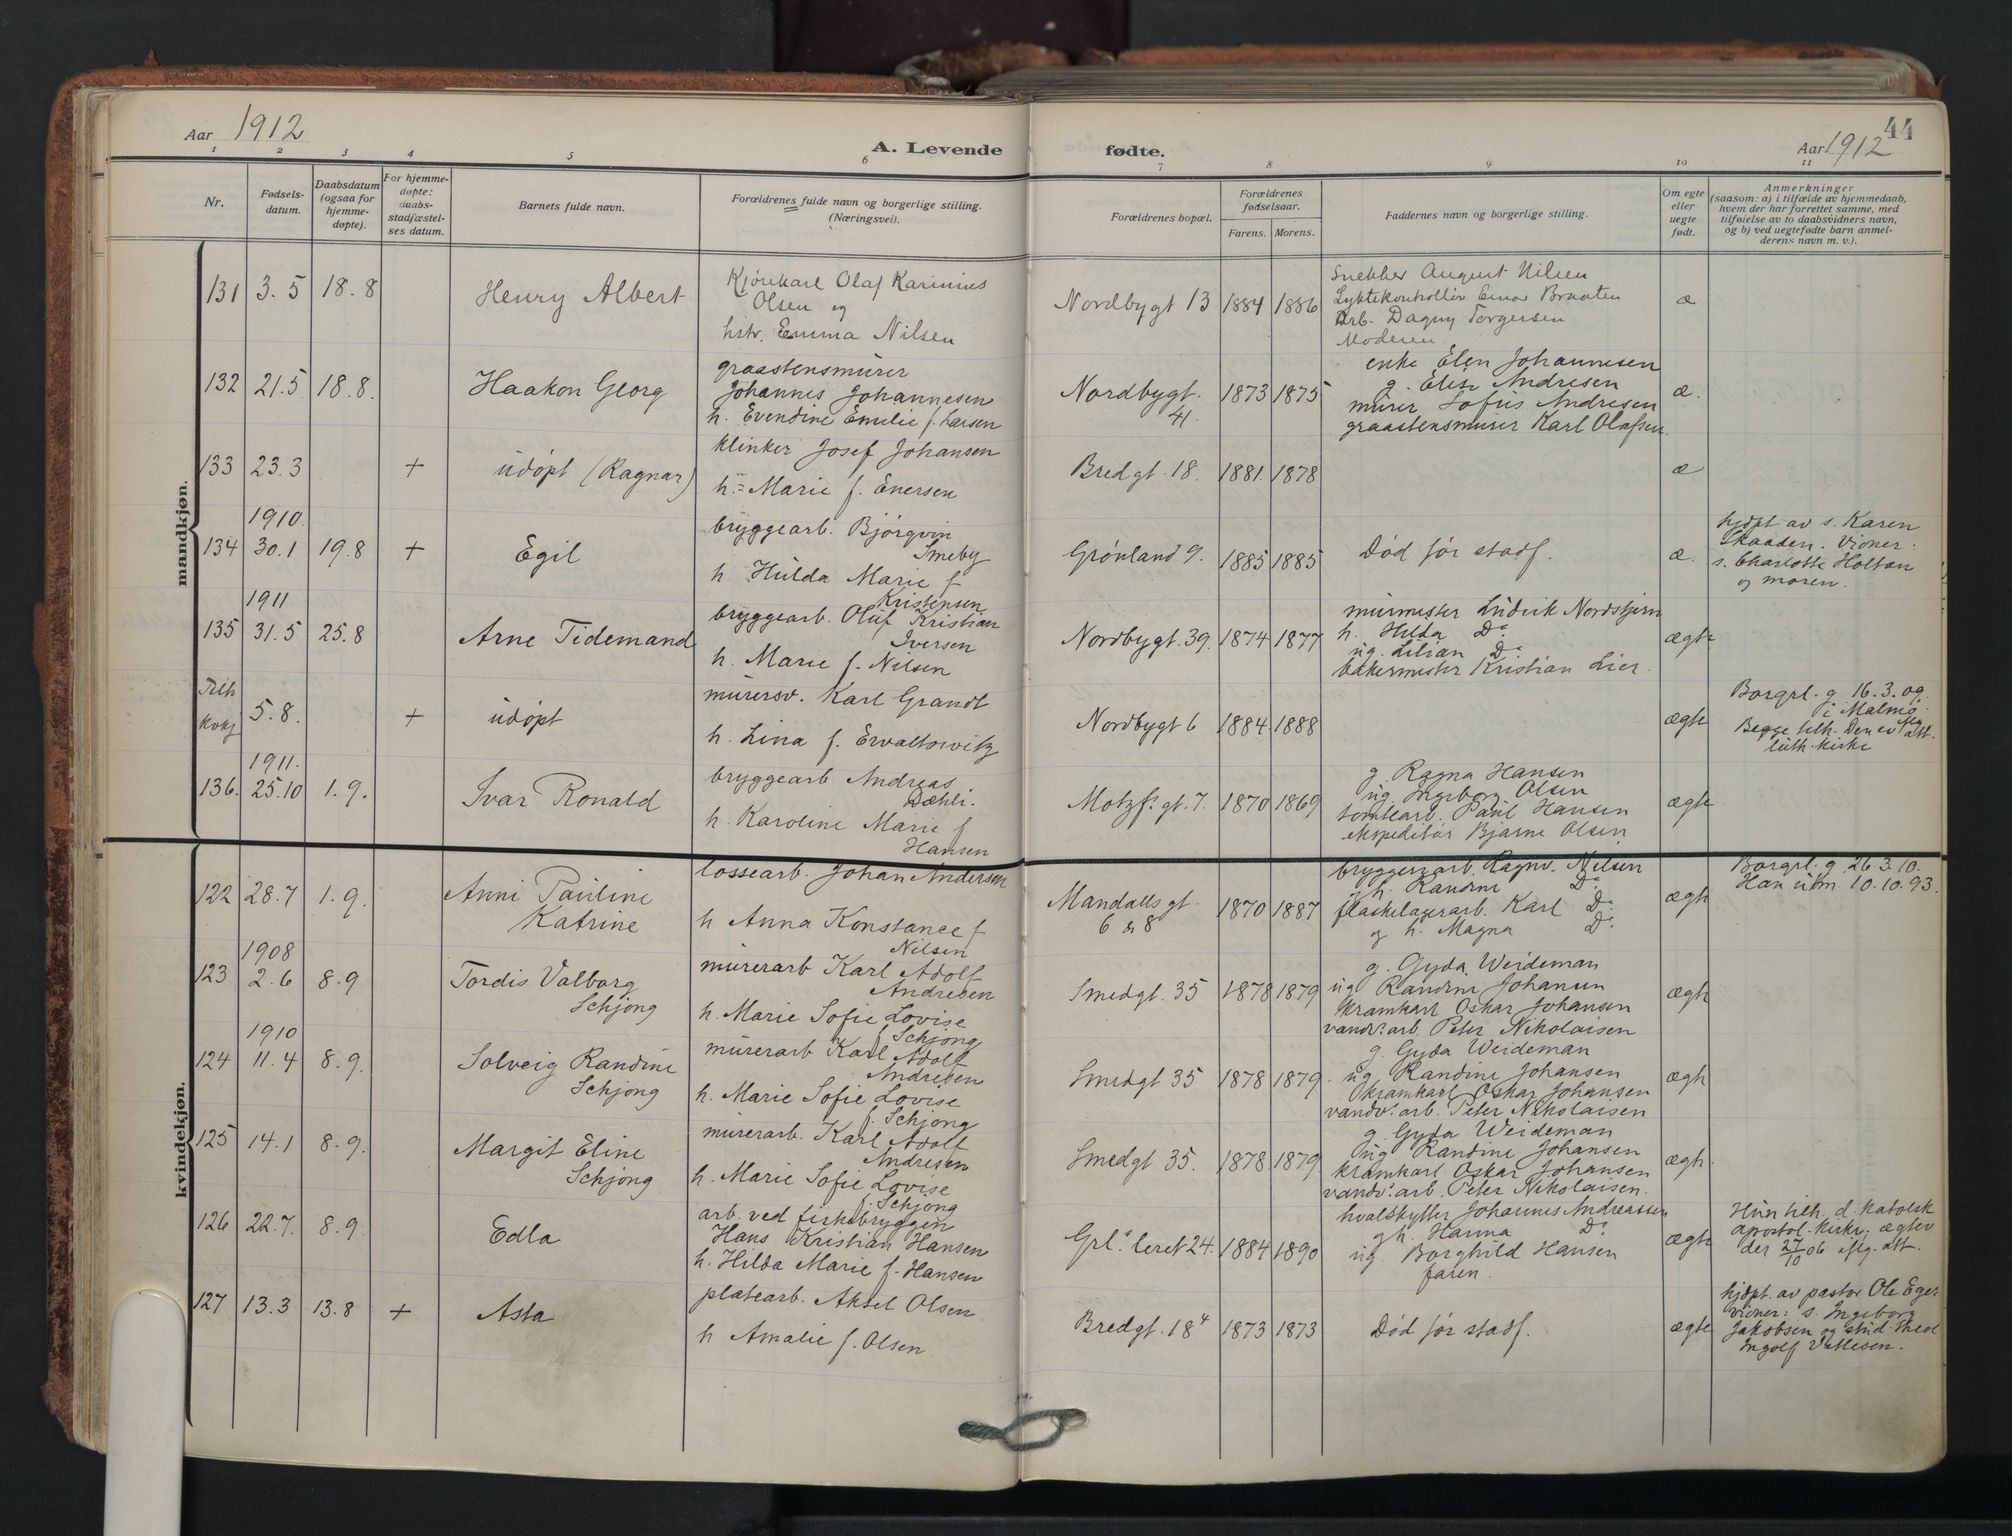 Aar 1912
A. Levende fødte.
Aar 1912
44
1 2 3 4 5 6 7 8 9 10 11
Nr.
Fødsels-
datum.
Daabsdatum
(ogsaa for
hjemme-
døpte).
For hjemme-
døpte:
daabs-
stadfæstel-
ses datum.
Barnets fulde navn.
Forældrenes fulde navn og borgerlige stilling.
(Næringsvei).
Forældrenes bopæl.
Forældrenes
fødselsaar.
Farens. Morens.
Faddernes navn og borgerlige stilling.
Om egte
eller
uegte
født.
Anmerkninger
(saasom: a) i tilfælde av hjemmedaab,
hvem der har forrettet samme, med
tilføielse av to daabsvidners navn,
og b) ved uegtefødte barn anmel-
derens navn m. v.).
mandkjøn.
131 3.5 18.8 Henry Albert
Kjørekarl Olaf Karinius
Olsen og
hstr. Emma Nilsen
Nordbygt 13 1884 1886
Snekker August Nilsen
Lyktekontrollør Einar Braaten
Arb. Dagny Torgersen
Moderen.
æ
132 21.5 18.8. Haakon Georg
graastensmurer
Johannes Johannesen
h. Evendine Emilie f. Larsen
Nordbygt.
41.
1873 1875
enke Elen Johannesen
g. Elise Andresen
murer Sofus Andresen
graastensmurer Karl Olafsen.
æ.
133 23.3 + udøpt (Ragnar)
klinker Josef Johansen
h. Marie f. Enersen
Bredgt. 18. 1881. 1878
æ
1910
134 30.1 19.8 + Egil
bryggearb. Bjørgvin
Smeby
h. Hulda Marie f
Kristensen
Grønland 9. 1885 1885
Død før stadf.
æ.
hjdpt av s. Karen
Skaaden. Vidner:
s. Charlotte Holtan
og moren.
1911
135 31.5 25.8 Arne Tidemand
bryggearb. Oluf Kristian
Iversen
h. Marie f. Nilsen
Nordbygt. 39. 1874 1877
murmester Ludvik Nordstjern
h. Hilda Do
ug. Lilian Do
bakermester Kristian Lier.
ægte
Tilh
kvkj 5.8. + udøpt
murersv. Karl Grandt
h. Lina f. Ervaltowitz
Nordbygt 6 1884 1888
ægte
Borgrl. g. 16.3.09.
i Malmø.
Begge tilh. Den ev
luth. kirke
flg. att.
1911.
136. 25.10 1.9. Ivar Ronald
bryggearb Andreas
Dæhli.
h. Karoline Marie f
Hansen
Motzf. gt. 7. 1870 1869
g. Ragna Hansen
ug Ingeborg Olsen
tomtearb. Paul Hansen
ekspeditør Bjarne Olsen
ægte
kvindekjøn.
122 28.7 1.9. Anni Pauline
Katrine
lossearb. Johan Andersen
h Anna Konstance f
Nilsen
Mandalls gt.
6 og 8
1870 1887
bryggeriarb. Ragnv. Nilsen
g h. Randine Do
flaskelagerarb. Karl Do
og h. Magna Do
ægte
Borgrl. g. 26.3.10.
Han utm. 10.10.93.
1908
123 2.6 8.9 Tordis Valborg
Schjong
murerarb Karl Adolf
Andresen
h. Marie Sofie Lovise
f. Schjong
Smedgt. 35 1878 1879
g. Gyda Weideman
ug Randine Johansen
kramkarl Oskar Johansen
vandv. arb. Peter Nikolaisen
ægte
1910
124 11.4 8.9. Solveig Randine
Schjong
murerarb Karl Adolf
Andresen
h. Marie Sofie Lovise
f. Schjong
Smedgt 35 1878 1879
g. Gyda Weideman
ug Randine Johansen
kramkarl Oskar Johansen
vandv. arb. Peter Nikolaisen
ægte
125 14.1 8.9. Margit Eline
Schjong
murerarb. Karl Adolf
Andresen
h. Marie Sofie Lovise
f. Schjong
Smedgt 35. 1878 1879
g. Gyda Weideman
ug Randine Johansen
kramkarl Oskar Johansen
vandv. arb. Peter Nikolaisen.
ægte.
126 22.7. 8.9. Edla
arb. ved fiskebryggen
Hans Kristian Hansen
h. Hilda Marie f. Hansen
Grl. leret 24. 1884 1890
hvalskytter Johannes Andreassen
g h. Hanna Do
ug. Borghild Hansen
faren.
ægte
Hun tilh. d. katolsk
apostol. kirke, ægtev
der 27/10 06 iflg. att.
127 13.3 13.8 + Asta
platearb. Aksel Olsen
h Amalie f. Olsen
Bredgt. 18 1873 1873
Død før stadf.
ægte
hjdpt. av pastor Ole Eger
vidner: s. Ingeborg
Jakobsen og stud. theol
Ingolf Vatlesen.